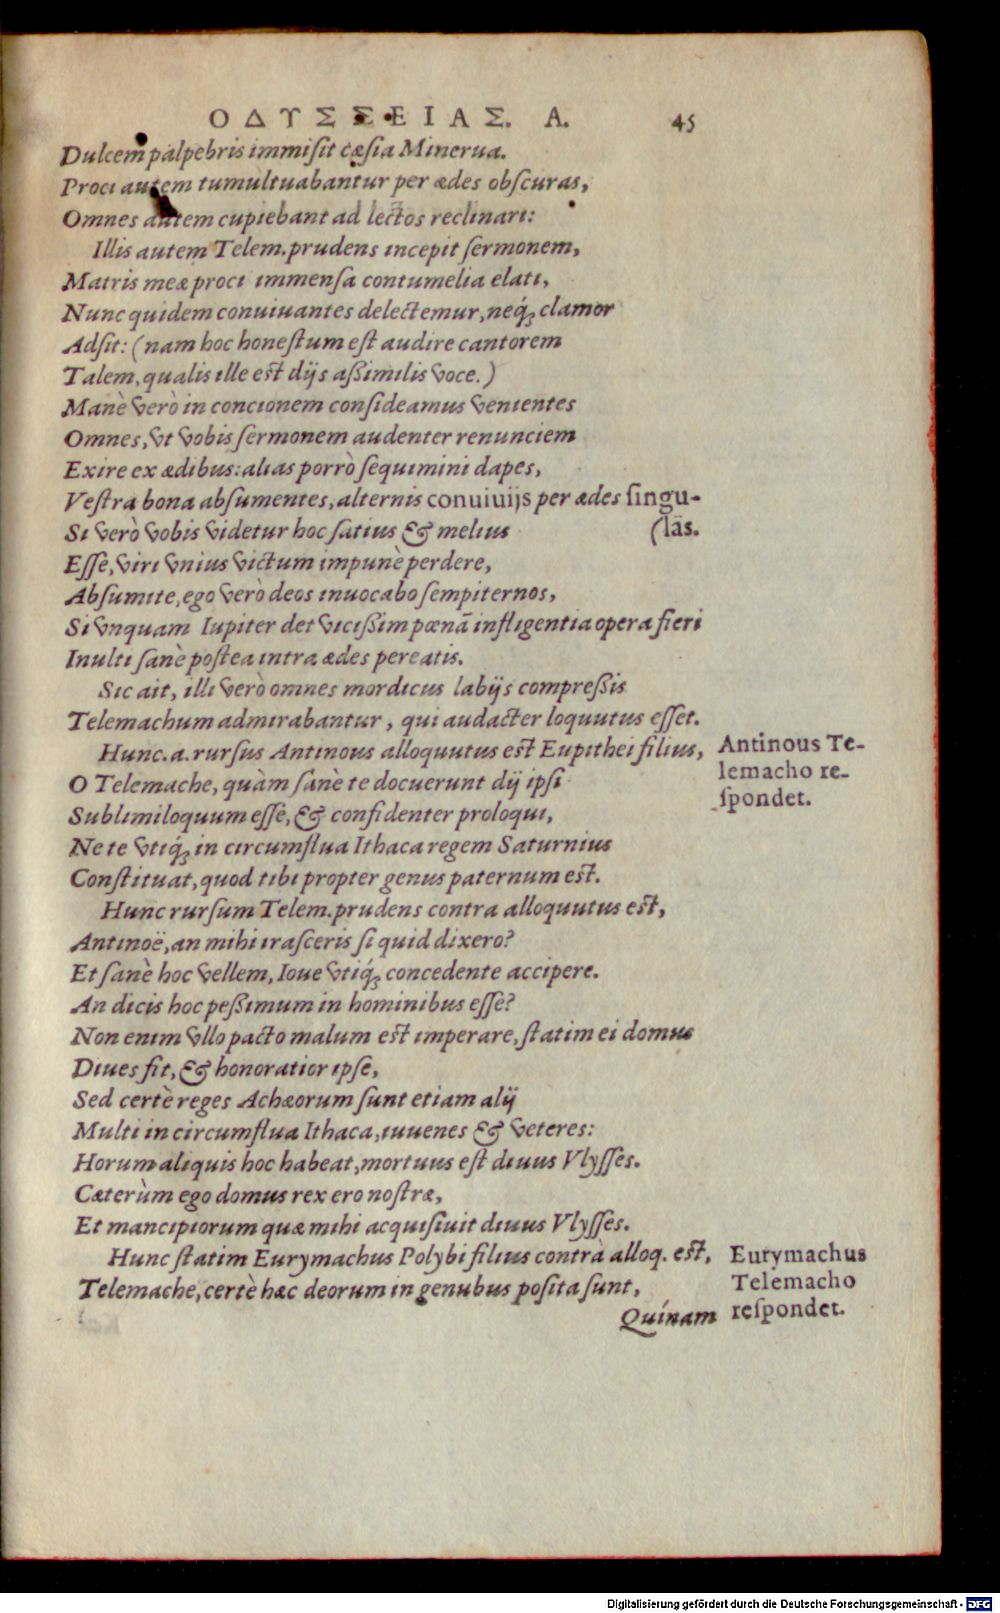 ΟΔΥΣΣΕΙΑΣ. Α. 45
Dulcem palpebris immiſit cæſia Minerua.
Proci autem tumultuabantur per ædes obſcuras,
Omnes autem cupiebant ad lectos reclinari:
Illis autem Telem. prudens incepit ſermonem,
Matris meæ proci immenſa contumelia elati,
Nunc quidem conuiuantes delectemur, neq́; clamor
Adſit: (nam hoc honeſtum eſt audire cantorem
Talem, qualis ille eſt dijs aßimilis voce.)
Manè verò in concionem conſideamus venientes
Omnes, vt vobis ſermonem audenter renunciem
Exire ex ædibus: alias porrò ſequimini dapes,
Veſtra bona abſumentes, alternis conuiuijs per ædes ſingu-
(las.
Si verò vobis videtur hoc ſatius & melius
Eſſe, viri vnius victum impunè perdere,
Abſumite, ego verò deos inuocabo ſempiternos,
Si vnquam Iupiter det vicißim pœnā infligentia opera fieri
Inulti ſanè poſtea intra ædes pereatis.
Sic ait, illi verò omnes mordicus labijs compreßis
Telemachum admirabantur, qui audacter loquutus eſſet.
Hunc. a. rurſus Antinous alloquutus eſt Eupithei filius,
Antinous Te-
lemacho re-
ſpondet.
O Telemache, quàm ſanè te docuerunt dij ipſi
Sublimiloquum eſſe, & confidenter proloqui,
Ne te vtiq́; in circumflua Ithaca regem Saturnius
Conſtituat, quod tibi propter genus paternum eſt.
Hunc rurſum Telem. prudens contra alloquutus eſt,
Antinoë, an mihi iraſceris ſi quid dixero?
Et ſanè hoc vellem, Ioue vtiq́; concedente accipere.
An dicis hoc peßimum in hominibus eſſe?
Non enim vllo pacto malum eſt imperare, ſtatim ei domus
Diues fit, & honoratior ipſe,
Sed certè reges Achæorum ſunt etiam alij
Multi in circumflua Ithaca, iuuenes & veteres:
Horum aliquis hoc habeat, mortuus eſt diuus Vlyſſes.
Cæterùm ego domus rex ero noſtræ,
Et mancipiorum quæ mihi acquiſiuit diuus Vlyſſes.
Hunc ſtatim Eurymachus Polybi filius contrà alloq. eſt,
Eurymachus
Telemacho
reſpondet.
Telemache, certè hæc deorum in genubus poſita ſunt,
Quínam
Digitalisierung gefördert durch die Deutsche Forschungsgemeinschaft - DFG